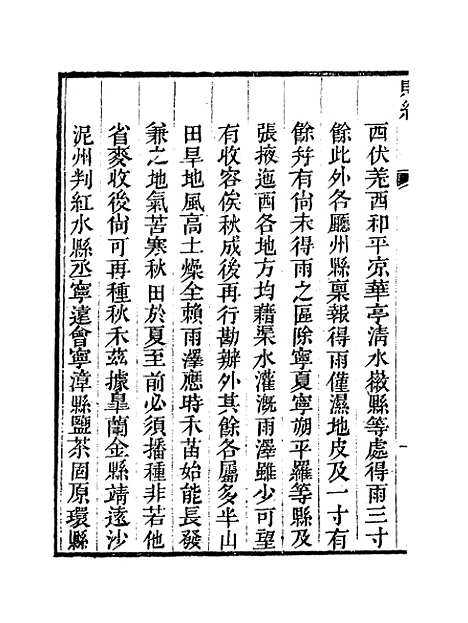 西伏羌西和平凉華亭清水徽縣等處得雨三寸
餘此外各廳州縣稟報得雨僅濕地皮及一寸有
餘并有尙未得雨之區除寧夏寧朔平羅等縣及
張掖迤西各地方均藉渠水灌漑雨澤雖少可望
有收容俟秋成後再行勘辦外其餘各屬多半山
田旱地風高土燥全賴雨澤應時禾苗始能長發
兼之地氣苦寒秋田於夏至前必須播種非若他
省麥收後尙可再種秋禾茲據臯蘭金縣靖遠沙
泥州判紅水縣丞寧遠會寧漳縣鹽茶固原環縣